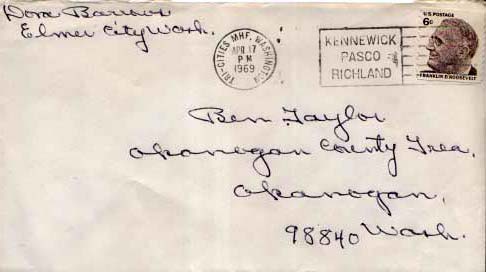 Dora Barrows
Elmer City Wash.
TRI-CITIES MHF, WASHINGTON
APR 17
PM
1969
KENNEWICK
PASCO
RICHLAND
U.S. POSTAGE
6¢
FRANKLIN D. ROOSEVELT
Ben Taylor
Okanogan County Trea.
Okanogan,
98840 Wash.